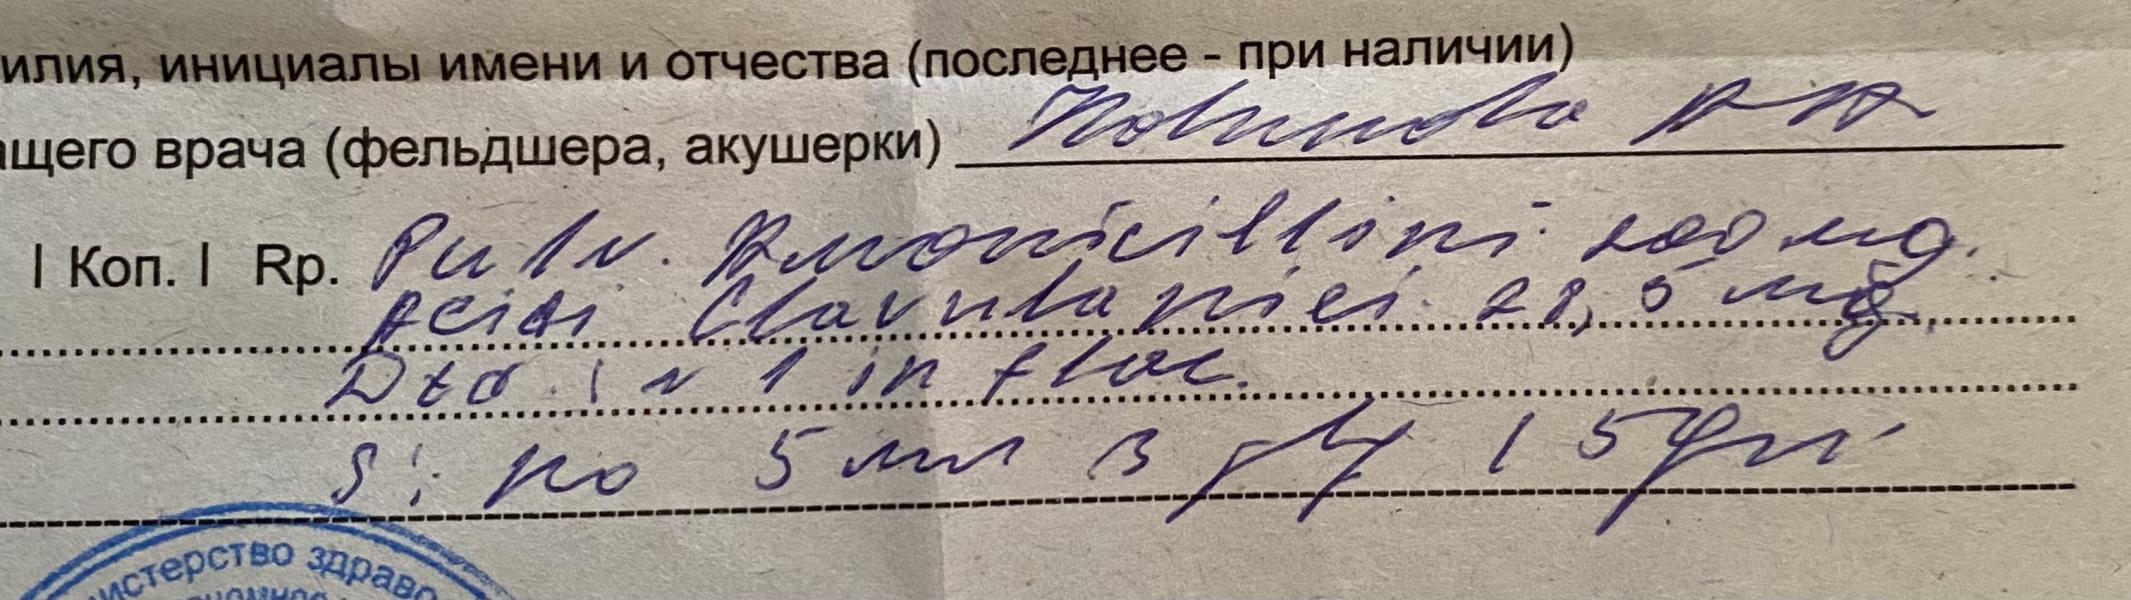 илия, инициалы имени и отчества (последнее - при наличии)
ащего врача (фельдшера, акушерки)
| Коп. | Rp. Pulv. Amoxicillini 200 mg.
Acidi Clavulanici 28,5 mg.
Dtd. N 1 in flac.
S: по 5 мл 3 р/д 5 дн
нистерство здраво